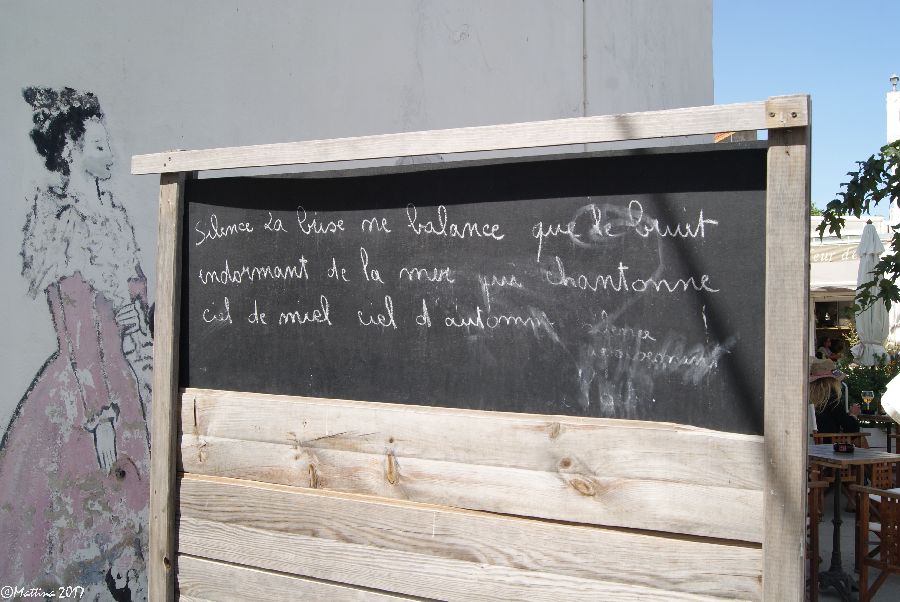 Silence La bise ne balance que le bruit
endormant de la mer qui chantonne
ciel de miel ciel d'automne silence !
eur de
©Mattina 2017